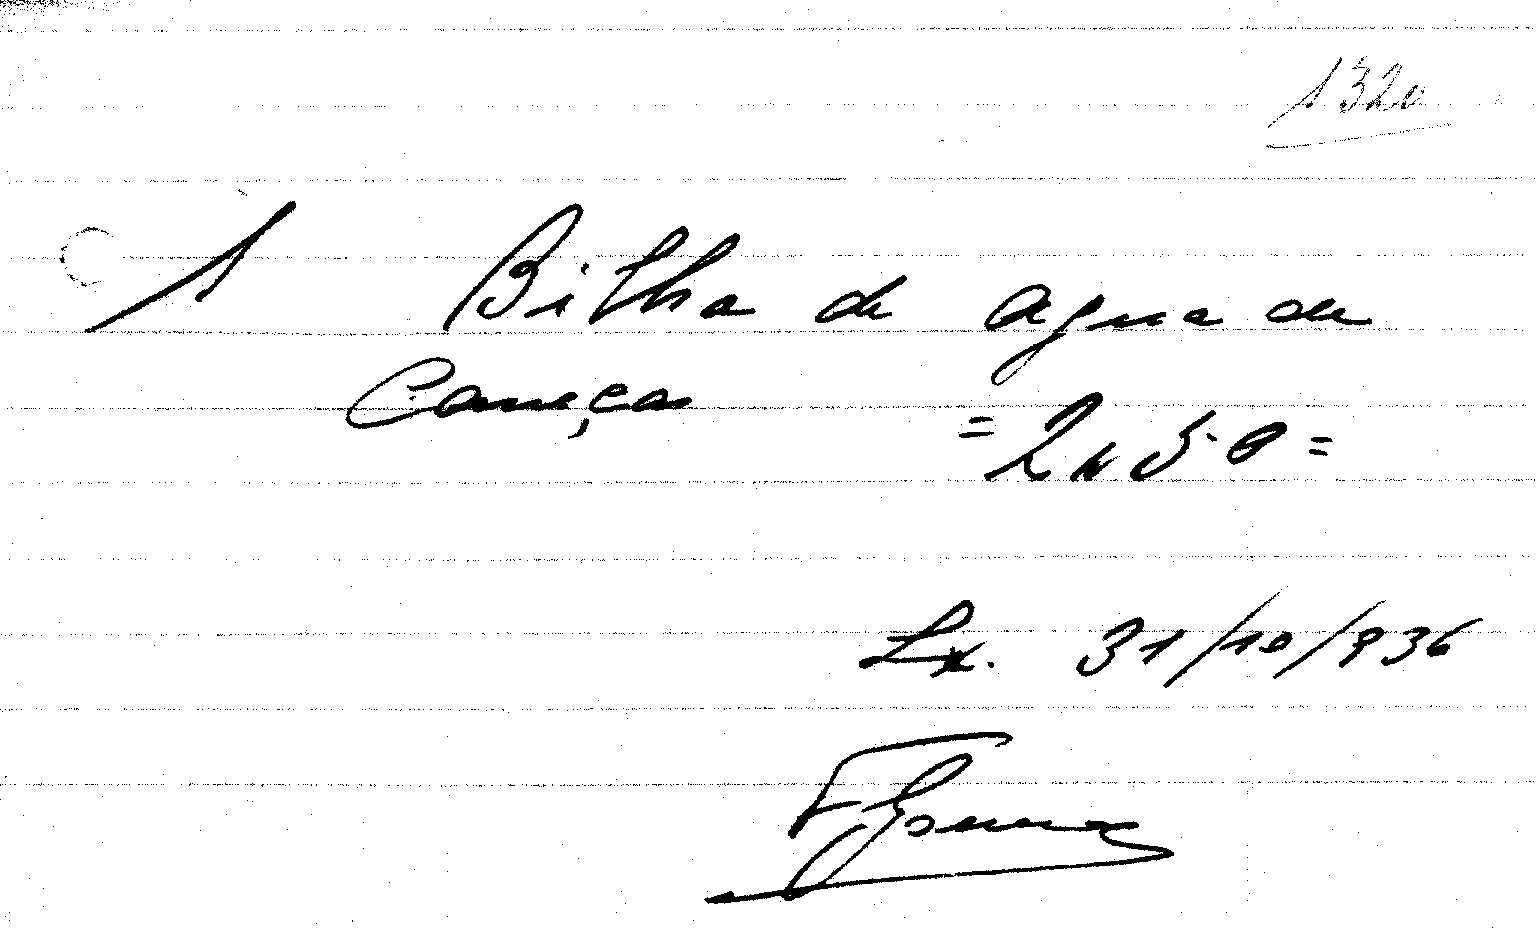 1320
1 Bilha de agua de
Caneças
=2$50=
Lx. 31/10/936